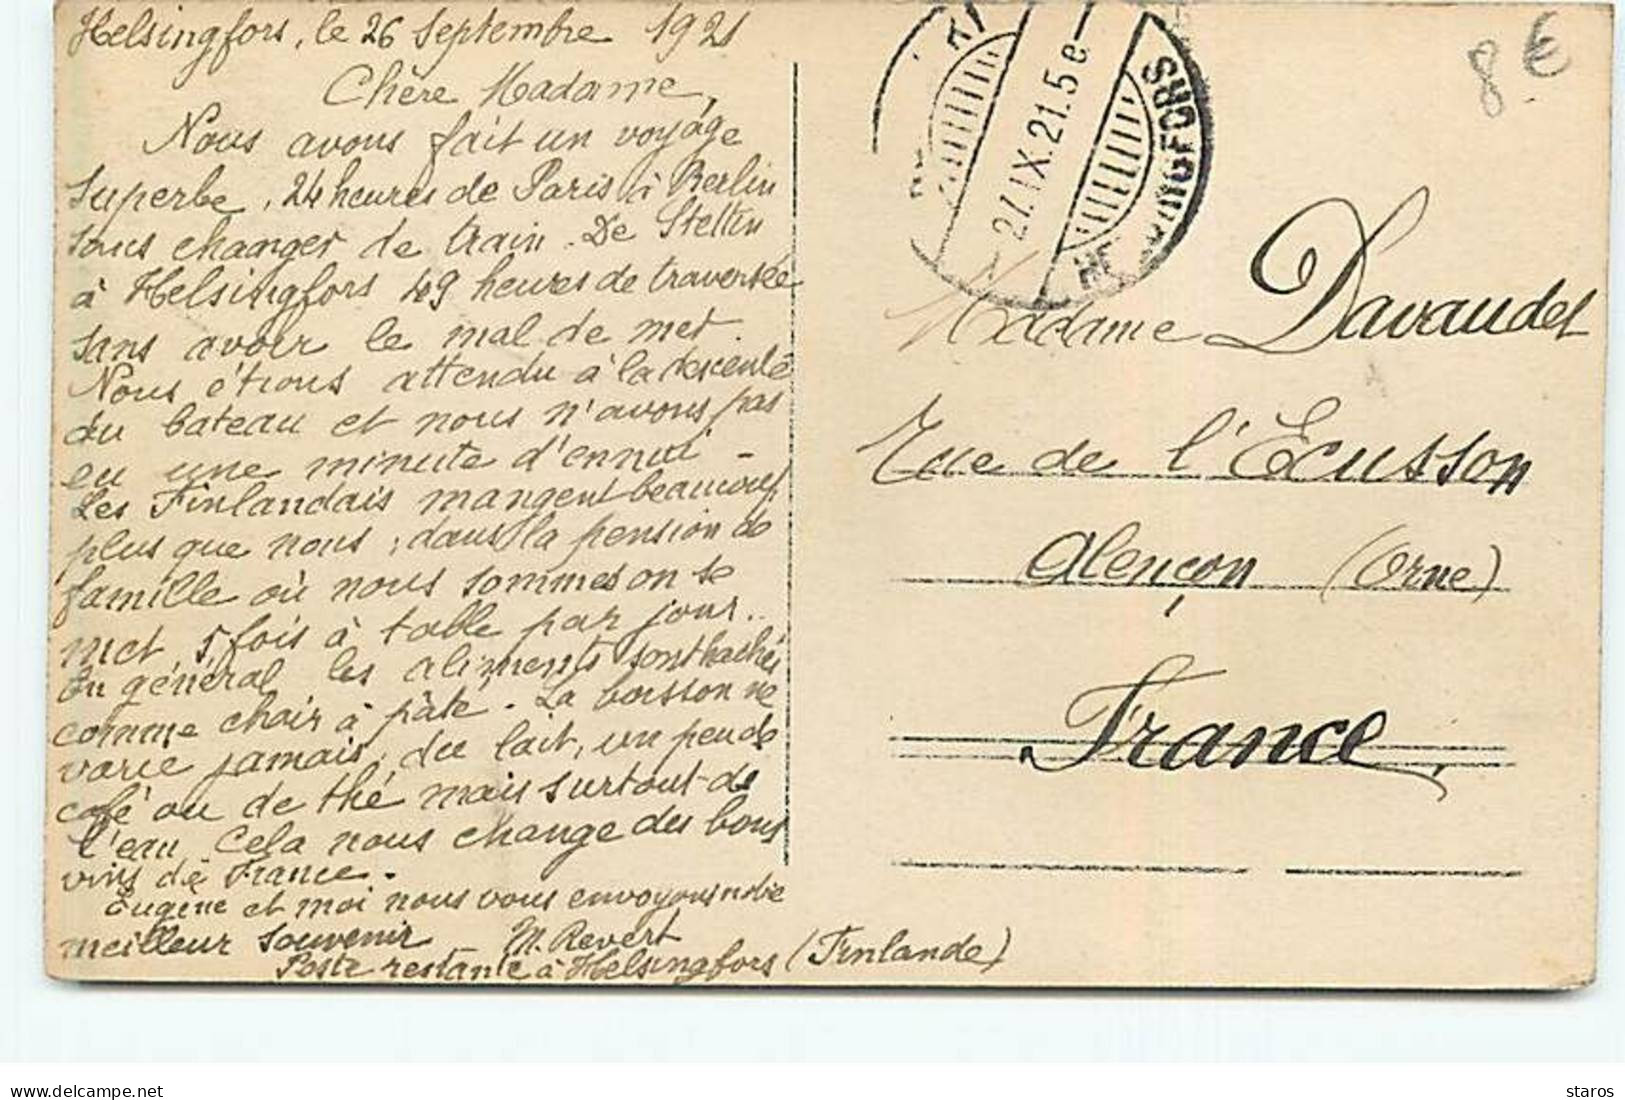 Helsingfors, le 26 Septembre 1921
Chère Madame,
Nous avons fait un voyage
superbe, 24 heures de Paris à Berlin
sans changer de train. De Stettin
à Helsingfors 49 heures de traversée
sans avoir le mal de mer.
Nous étions attendu à la descente
du bateau et nous n'avons pas
eu une minute d'ennui -
Les Finlandais mangent beaucoup
plus que nous, dans la pension de
famille où nous sommes on se
met 5 fois à table par jour..
En général les aliments sont hachés
comme chair à pâté. La boisson ne
varie jamais, du lait, un peu de
café ou de thé mais surtout de
l'eau. Cela nous change des bons
vins de France.
Eugène et moi nous vous envoyons notre
meilleur souvenir M. Revert
Poste restante à Helsingfors (Finlande)
8 €
HELSINGFORS
27.IX.21.5e
Madame Davaudet
Rue de l'Écusson
Alençon (Orne)
France
staros